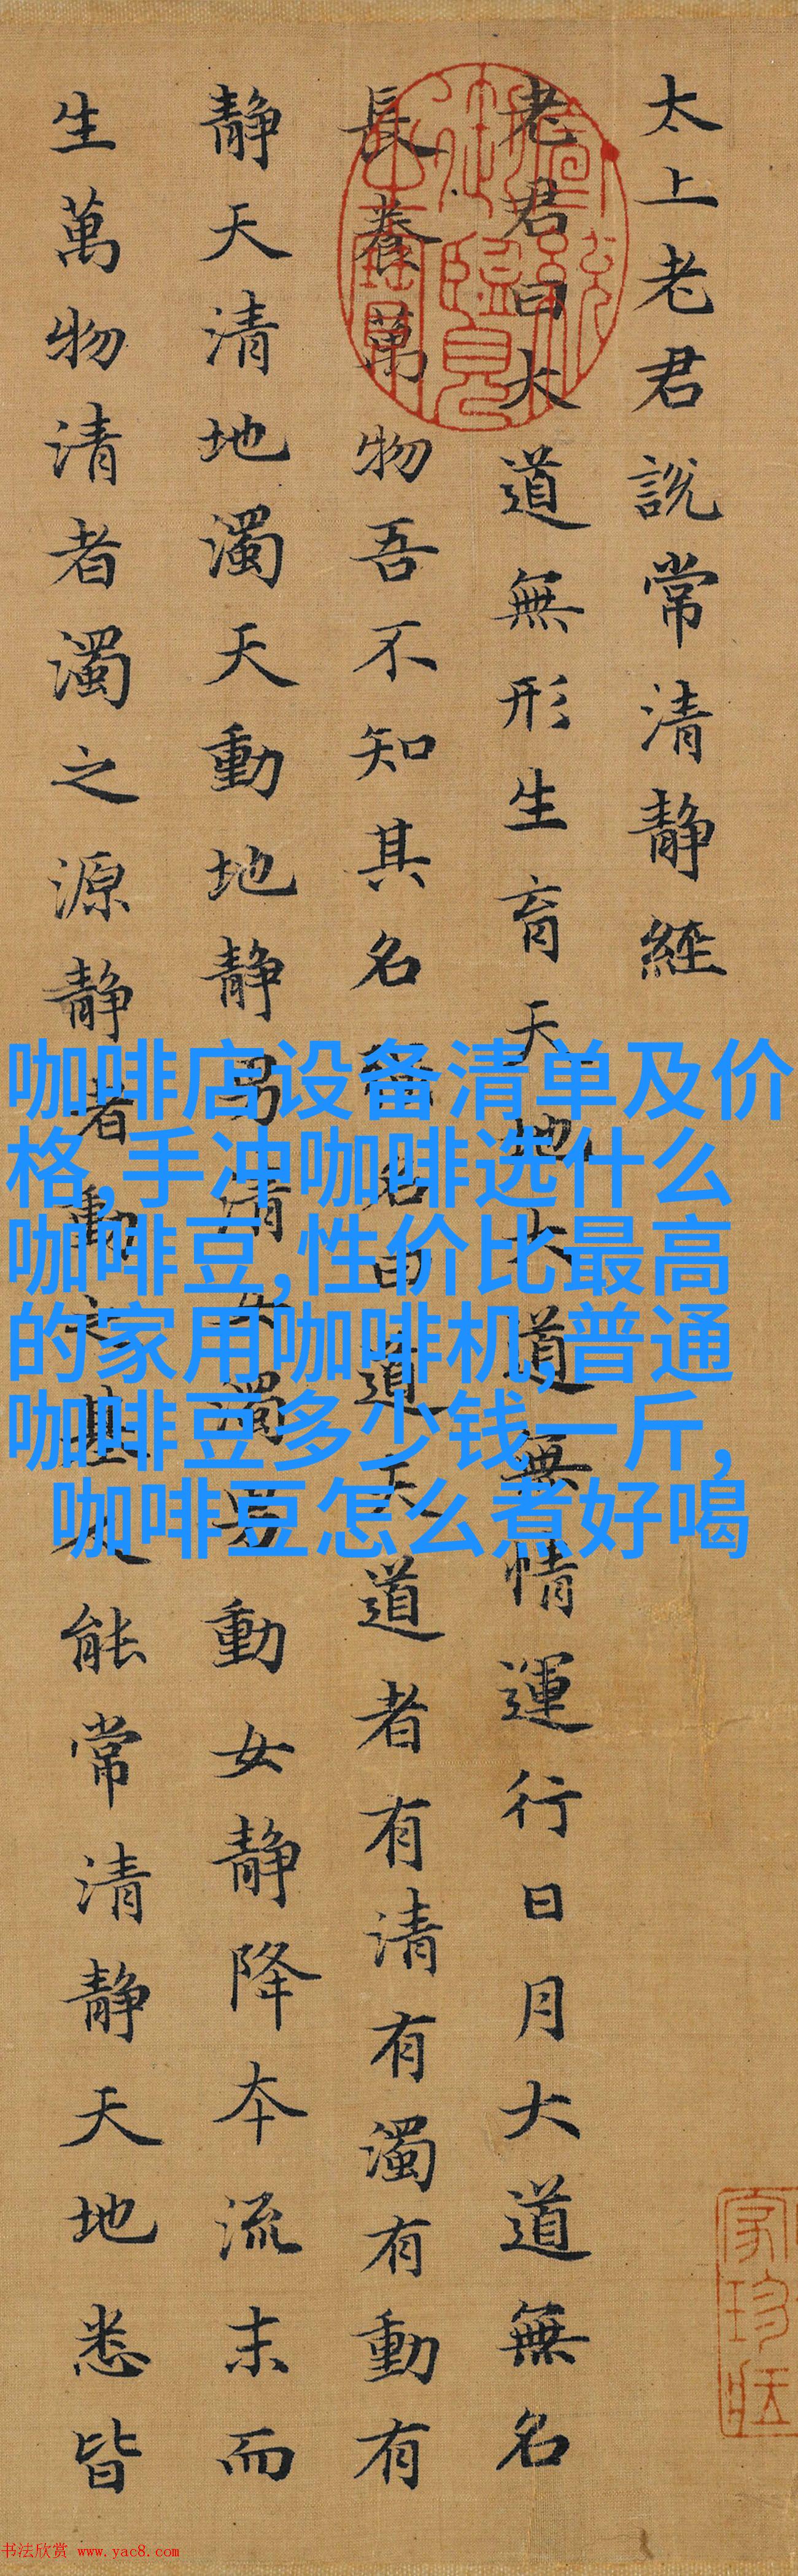 太上老君說常清静經
老君曰大道無形生育天地大道無情運行日月大道無名
長養萬物吾不知其名强名曰道夫道者有清有濁有動有
静天清地濁天動地静男清女濁男動女静降夲流末而
生萬物清者濁之源静者動之基人能常清静天地悉皆
宣統御覽之寶
咖啡店设备清单及价
格,手冲咖啡选什么
咖啡豆,性价比最高
的家用咖啡机,普通
咖啡豆多少钱一斤,
咖啡豆怎么煮好喝
书法欣赏 www.yac8.com